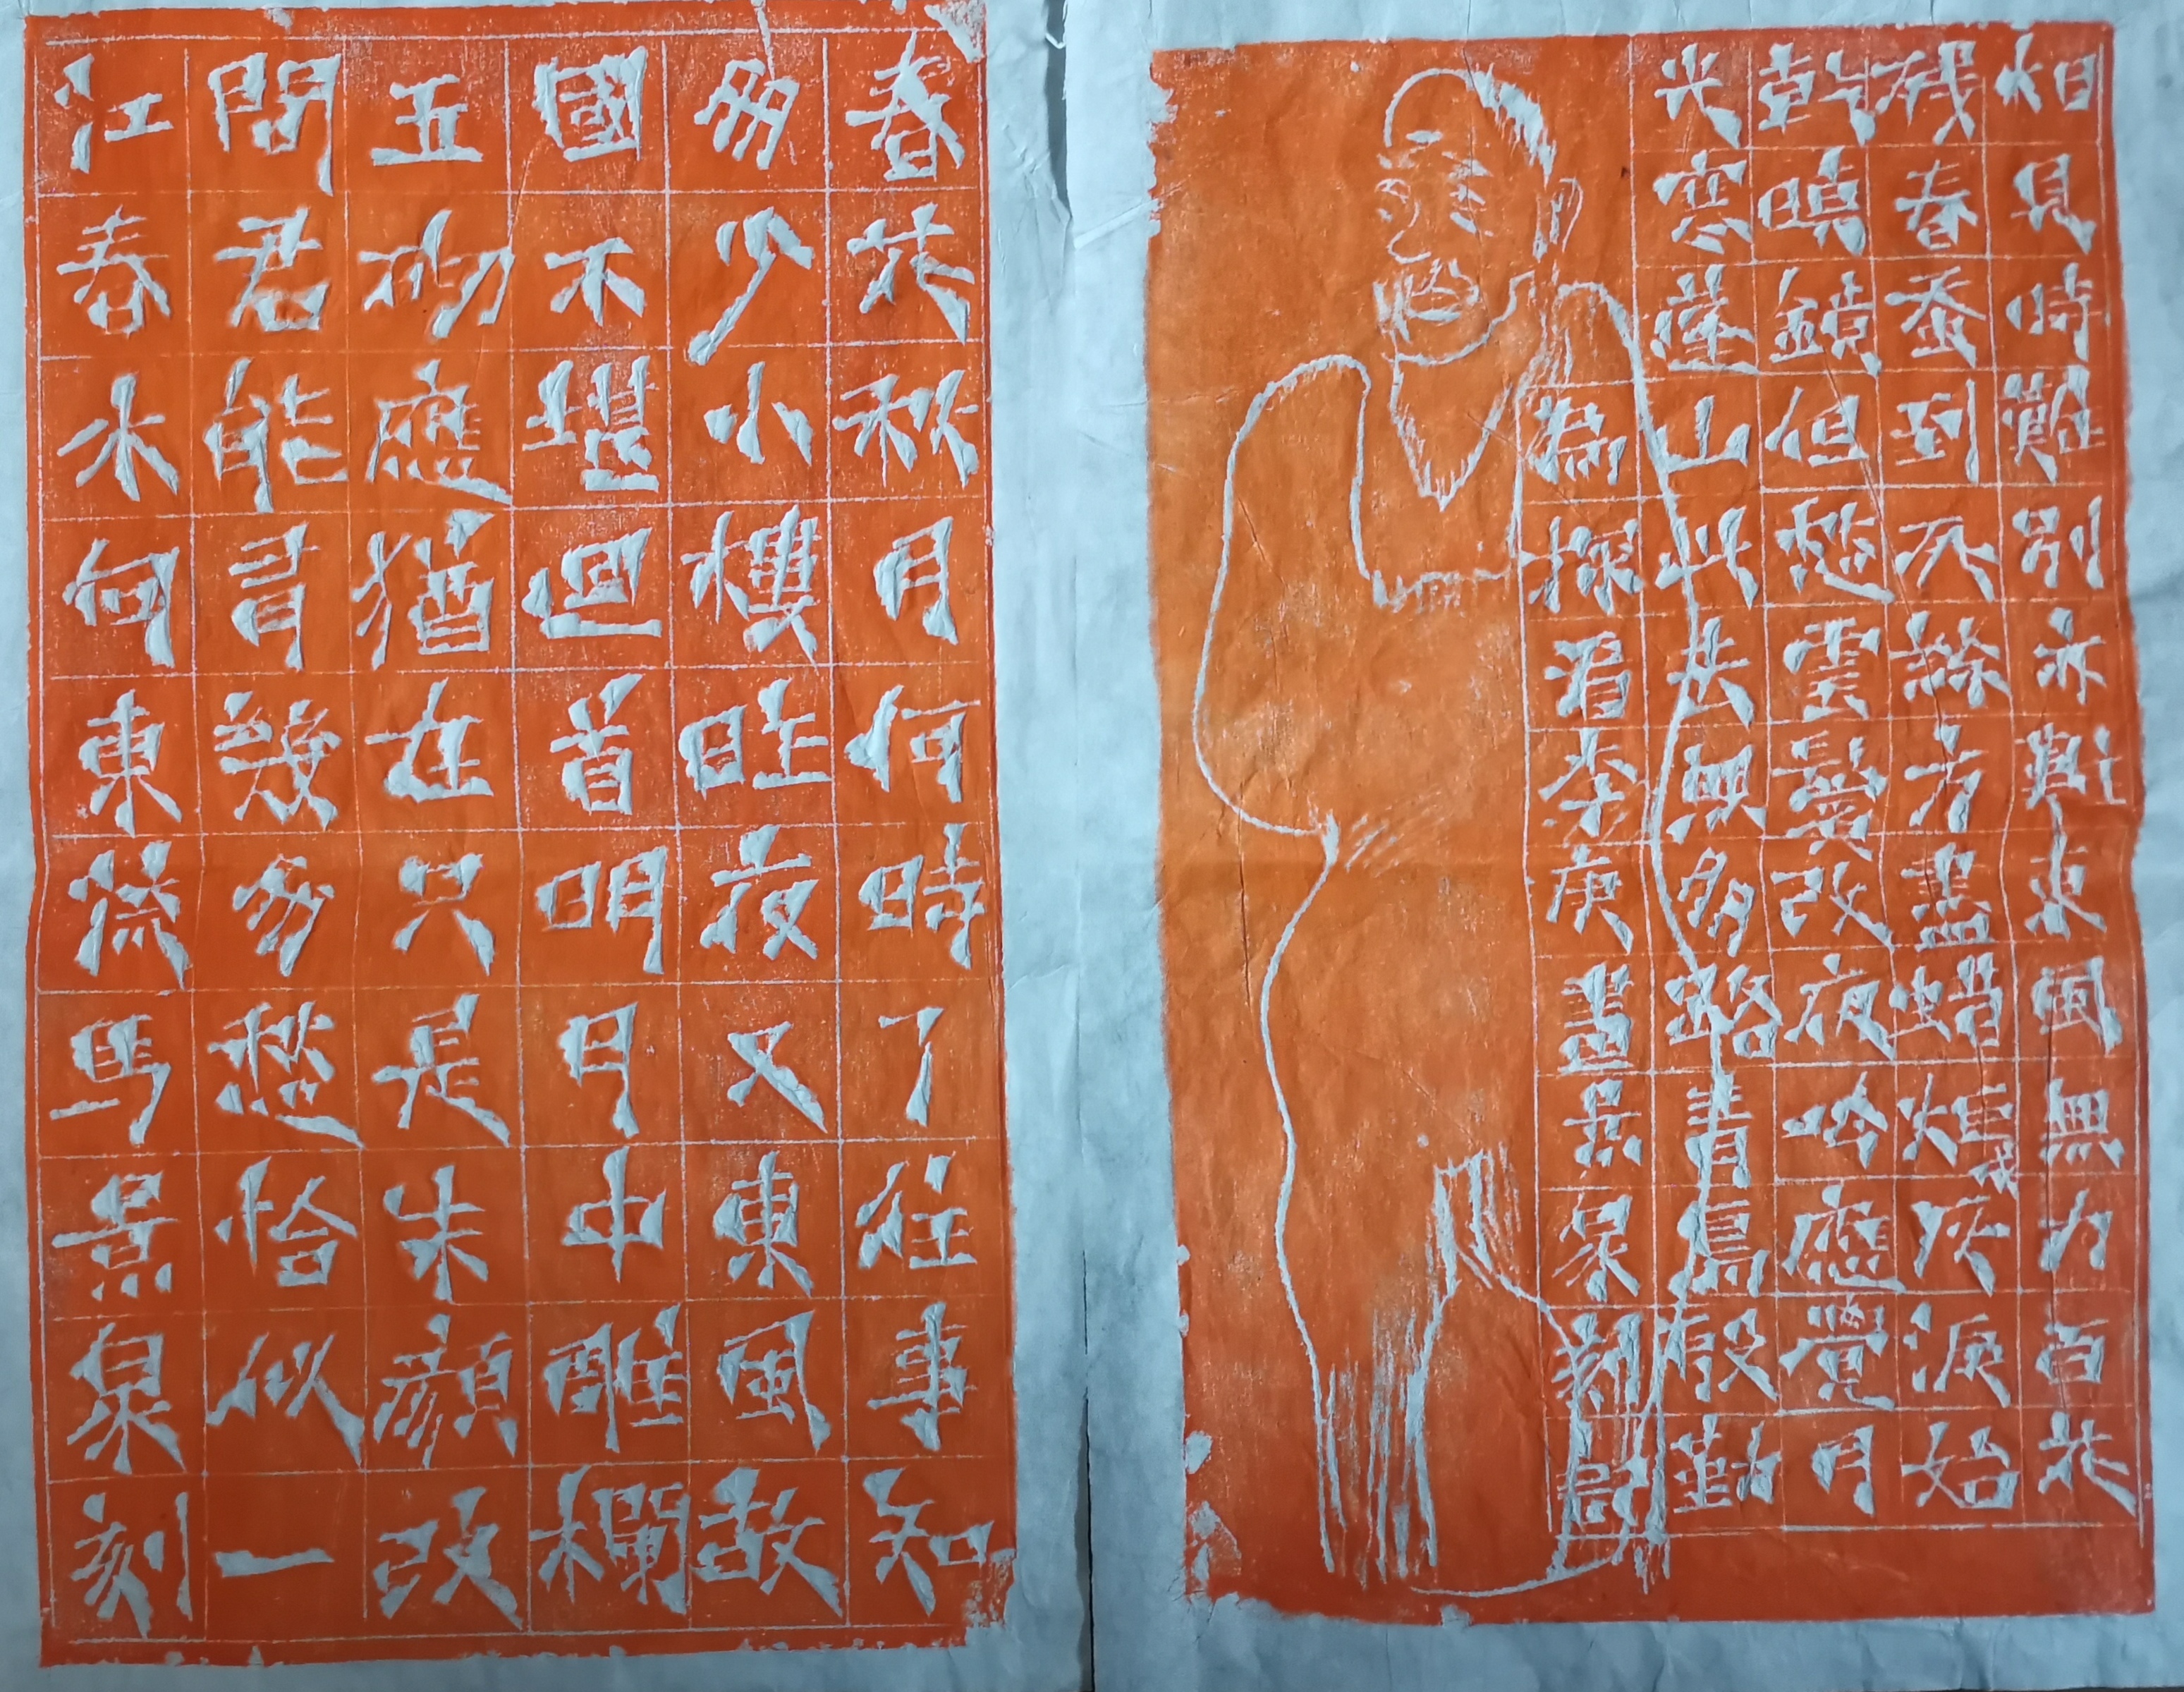 相見時難別亦難東風無力百花
残春蚕到死絲方盡蜡炬成灰淚始
乾曉鏡但愁雲鬢改夜吟應覺月
光寒蓬山此去無多路青鳥殷勤
為探看李庚畫景泉刻
春花秋月何時了往事知
多少小樓昨夜又東風故
國不堪迴首明月中雕欄
玉砌應猶在只是朱顏改
問君能有幾多愁恰似一
江春水向東流馬景泉刻